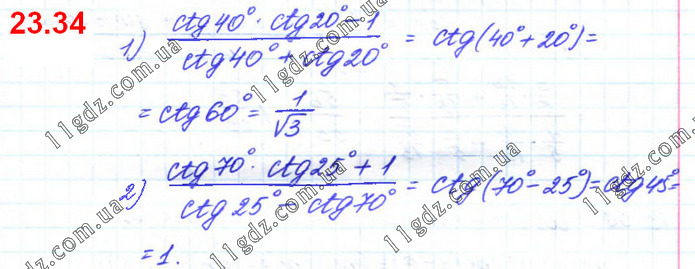 23.34
1) (ctg 40° · ctg 20° - 1) / (ctg 40° + ctg 20°) = ctg (40° + 20°) =
= ctg 60° = 1/√3
2) (ctg 70° · ctg 25° + 1) / (ctg 25° - ctg 70°) = ctg (70° - 25°) = ctg 45° =
= 1.
11gdz.com.ua
11gdz.com.ua
11gdz.com.ua
11gdz.com.ua
11gdz.com.ua